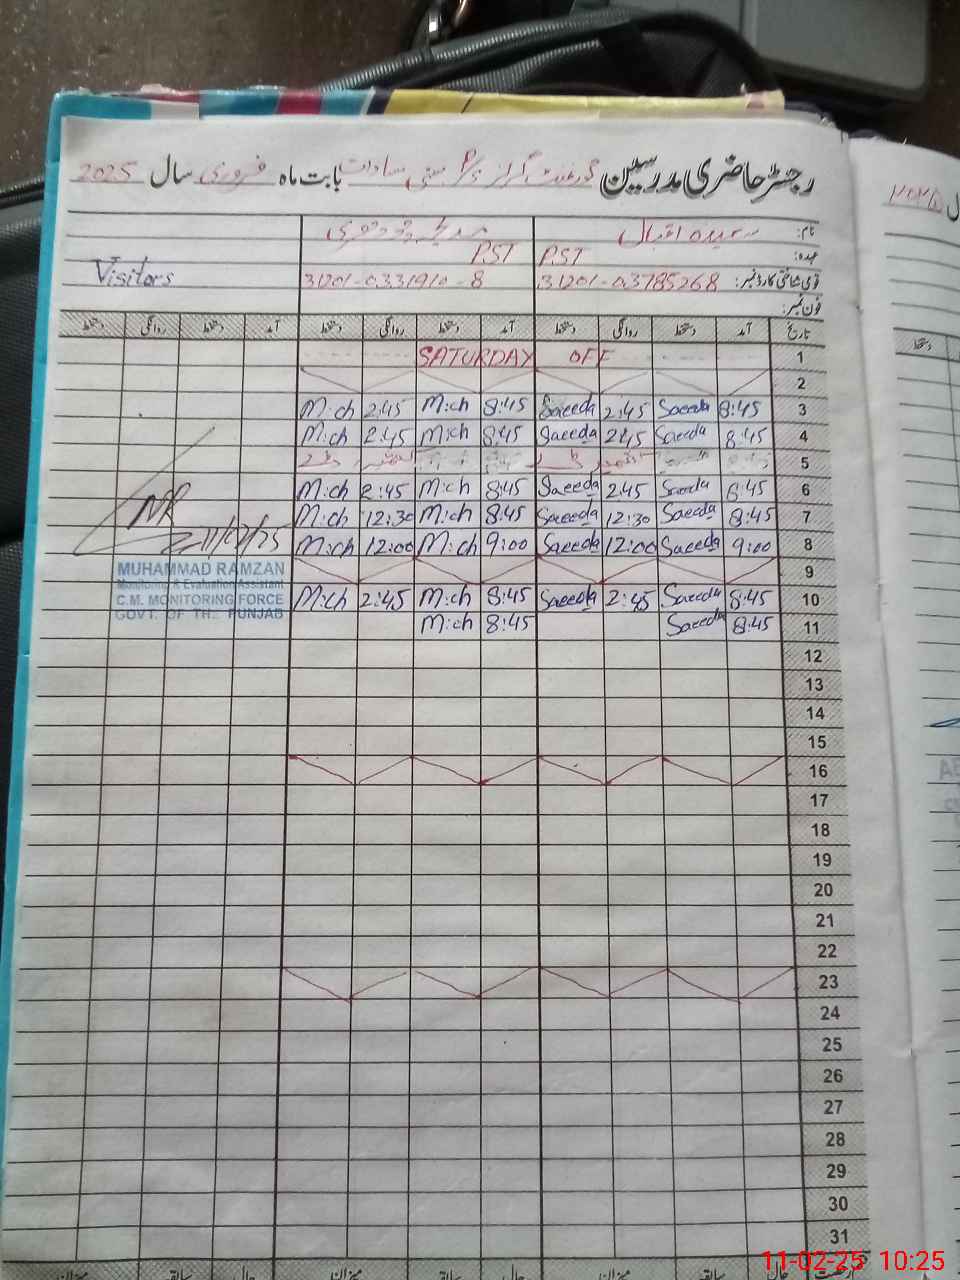 رجسٹر حاضری مدرسین گورنمنٹ گرلز بستی سادات بابت ماہ فروری سال 2025
نام: سعیدہ اقبال
عہدہ: PST PST
Visitors 31201-0331910-8 31201-03785268 قومی شناختی کارڈ نمبر:
فون نمبر:
تاریخ آمد دستخط روانگی دستخط آمد دستخط روانگی دستخط آمد دستخط روانگی دستخط
SATURDAY OFF 1
2
M:ch 2:45 M:ch 8:45 Saeeda 2:45 Saeeda 8:45 3
M:ch 2:45 M:ch 8:45 Saeeda 2:45 Saeeda 8:45 4
5
M:ch 2:45 M:ch 8:45 Saeeda 2:45 Saeeda 8:45 6
M:ch 12:30 M:ch 8:45 Saeeda 12:30 Saeeda 8:45 7
M:ch 12:00 M:ch 9:00 Saeeda 12:00 Saeeda 9:00 8
9
M:ch 2:45 M:ch 8:45 Saeeda 2:45 Saeeda 8:45 10
M:ch 8:45 Saeeda 8:45 11
MR
11/02/25
MUHAMMAD RAMZAN
Monitoring & Evaluation Assistant
C.M. MONITORING FORCE
GOVT. OF THE PUNJAB
12
13
14
15
16
17
18
19
20
21
22
23
24
25
26
27
28
29
30
31
میزان سابقہ حال میزان سابقہ حال میزان سابقہ حال
11-02-25 10:25